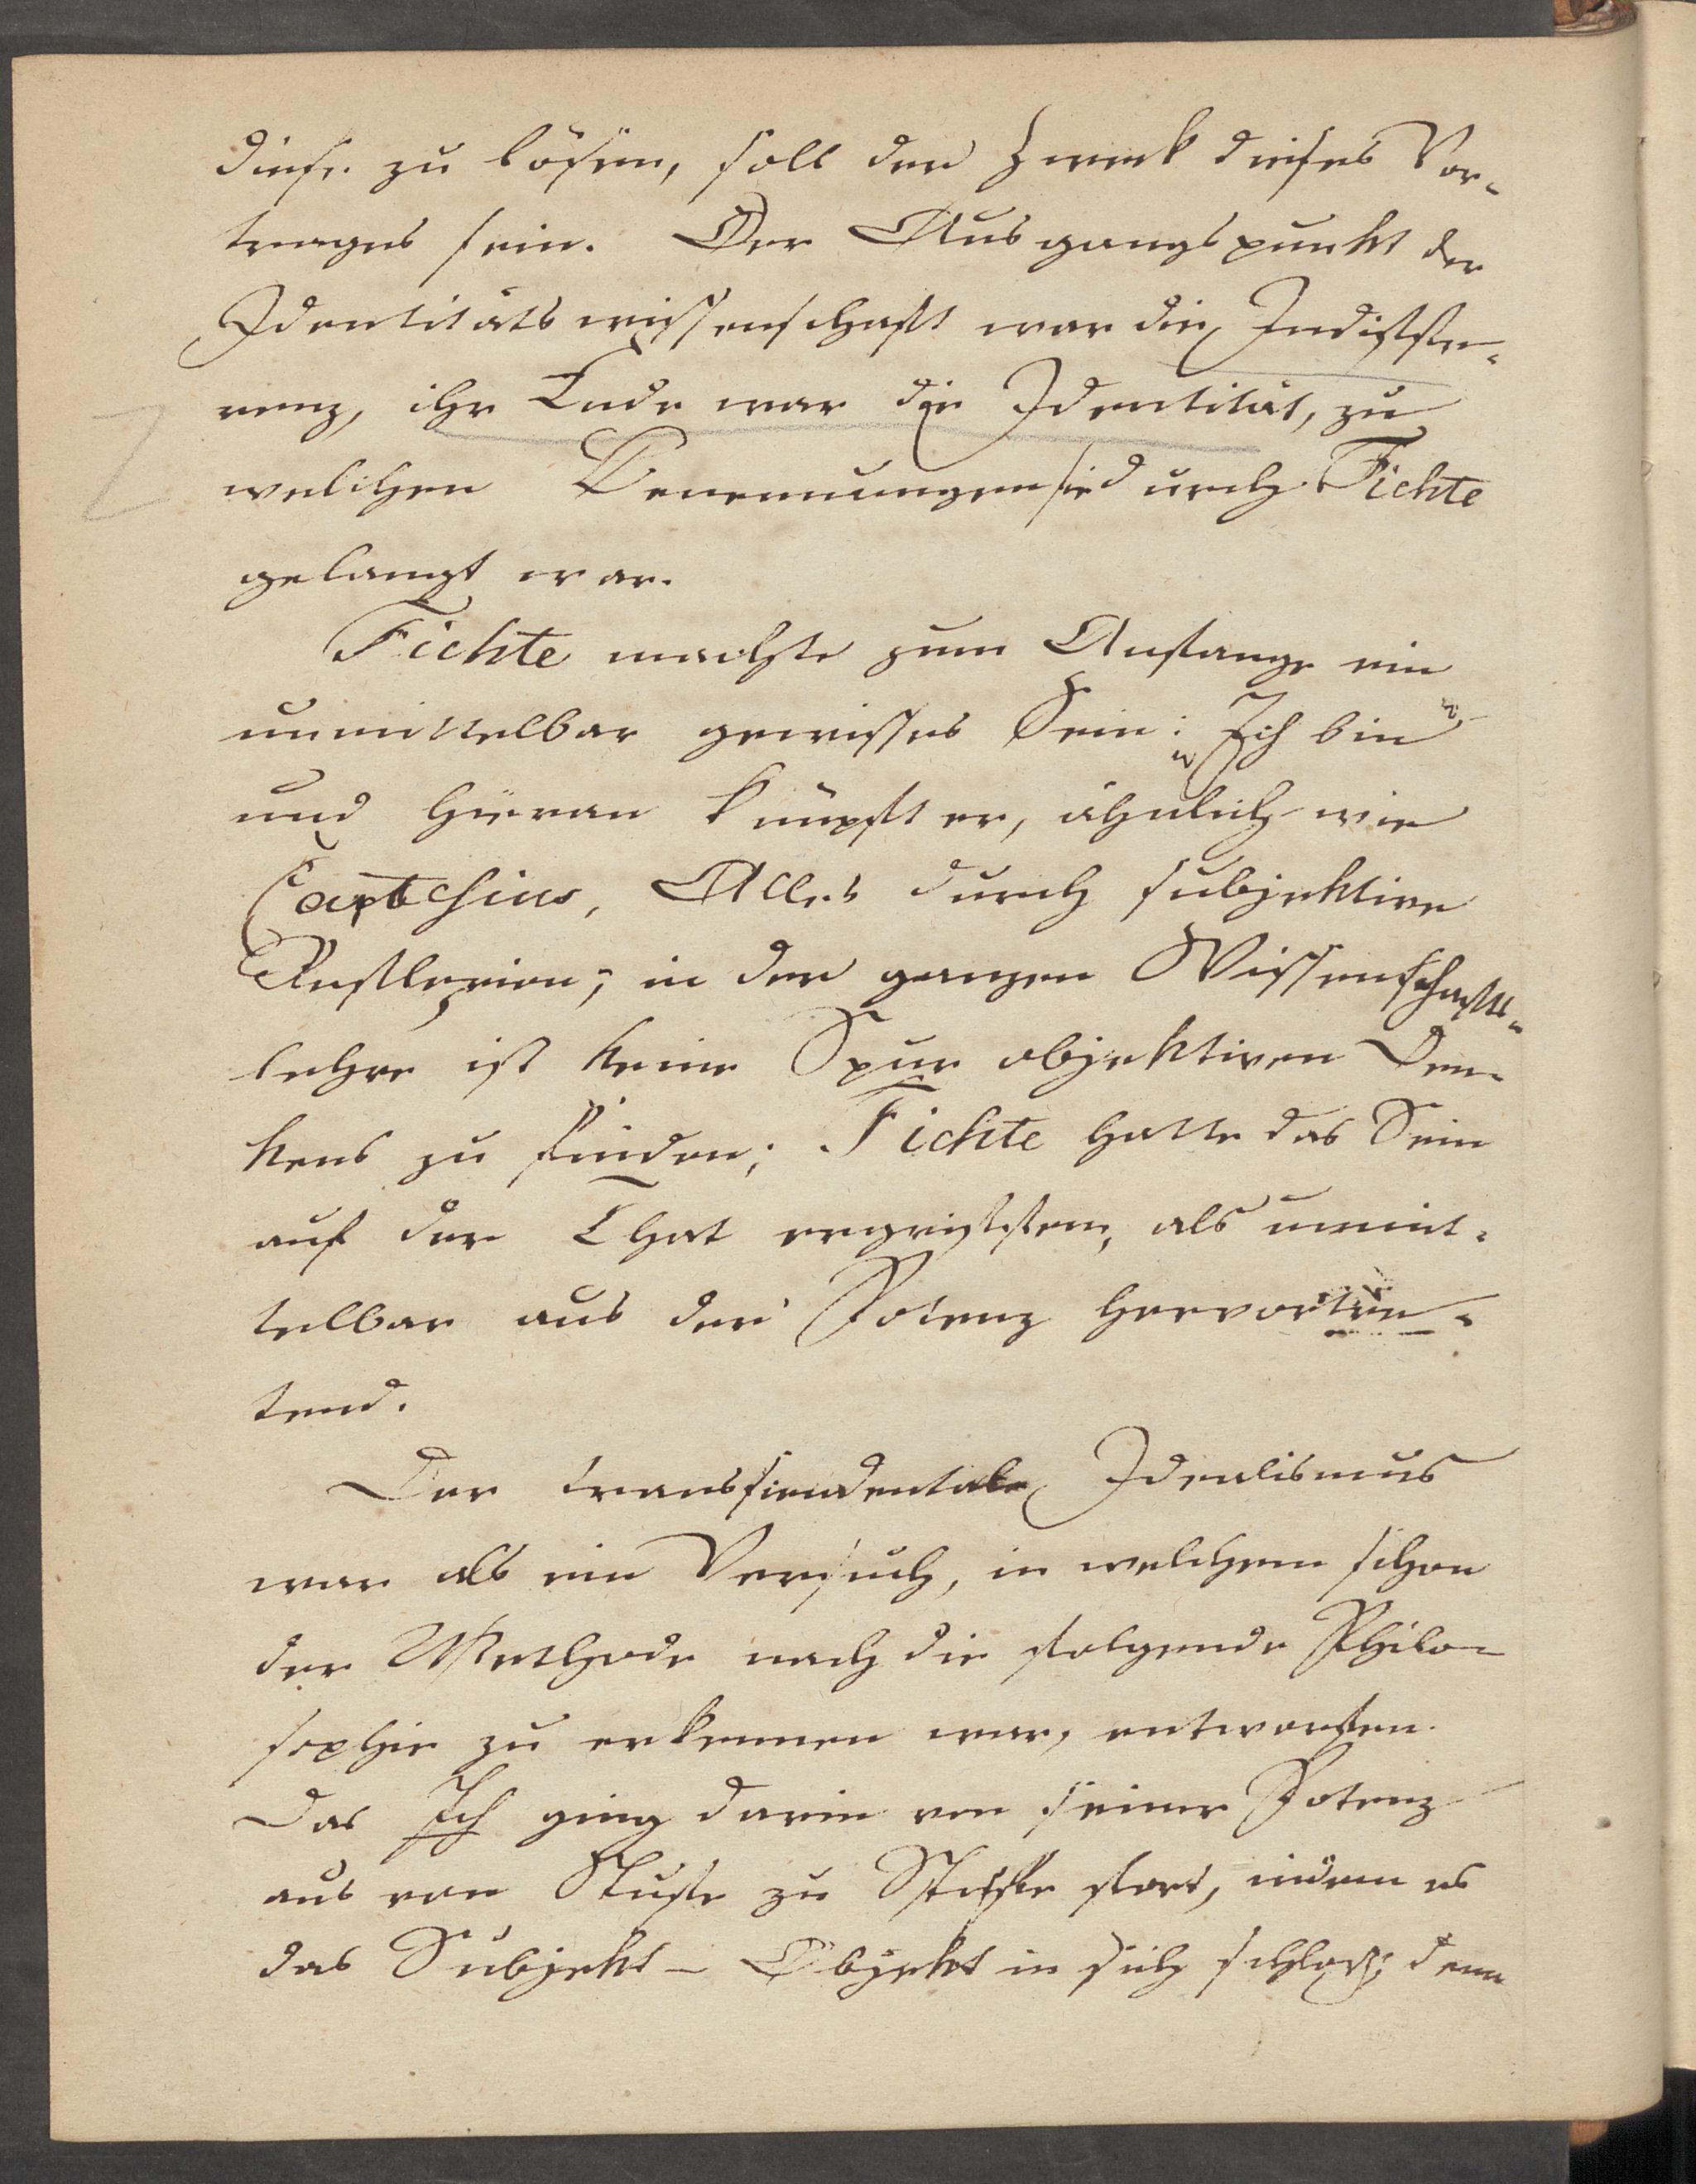 diese zu lösen, soll der Zweck dieses Vor-
trages sein. Der Ausgangspunkt der
Identitätswissenschaft war die Indiffe-
renz, ihr Ende war die Identität, zu
welchen Benennungen sie durch Fichte
gelangt war.
Fichte machte zum Anfange ein
unmittelbar gewisses Sein: „Ich bin“
und hieran knüpft er, ähnlich wie
Cartesius, Alles durch subjektive
Reflexion; in der ganzen Wissenschafts-
lehre ist keine Spur objektiven Den-
kens zu finden; Fichte hatte das Sein
auf der That ergriffen, als unmit-
telbar aus der Potenz hervortre-
tend.
Der transsendentale Idealismus
war als ein Versuch, in welchem schon
der Methode nach die folgende Philo-
sophie zu erkennen war, entworfen.
Das Ich ging darin von seiner Potenz
aus von Stufe zu Stufe fort, indem es
das Subjekt-Objekt in sich schloß; denn